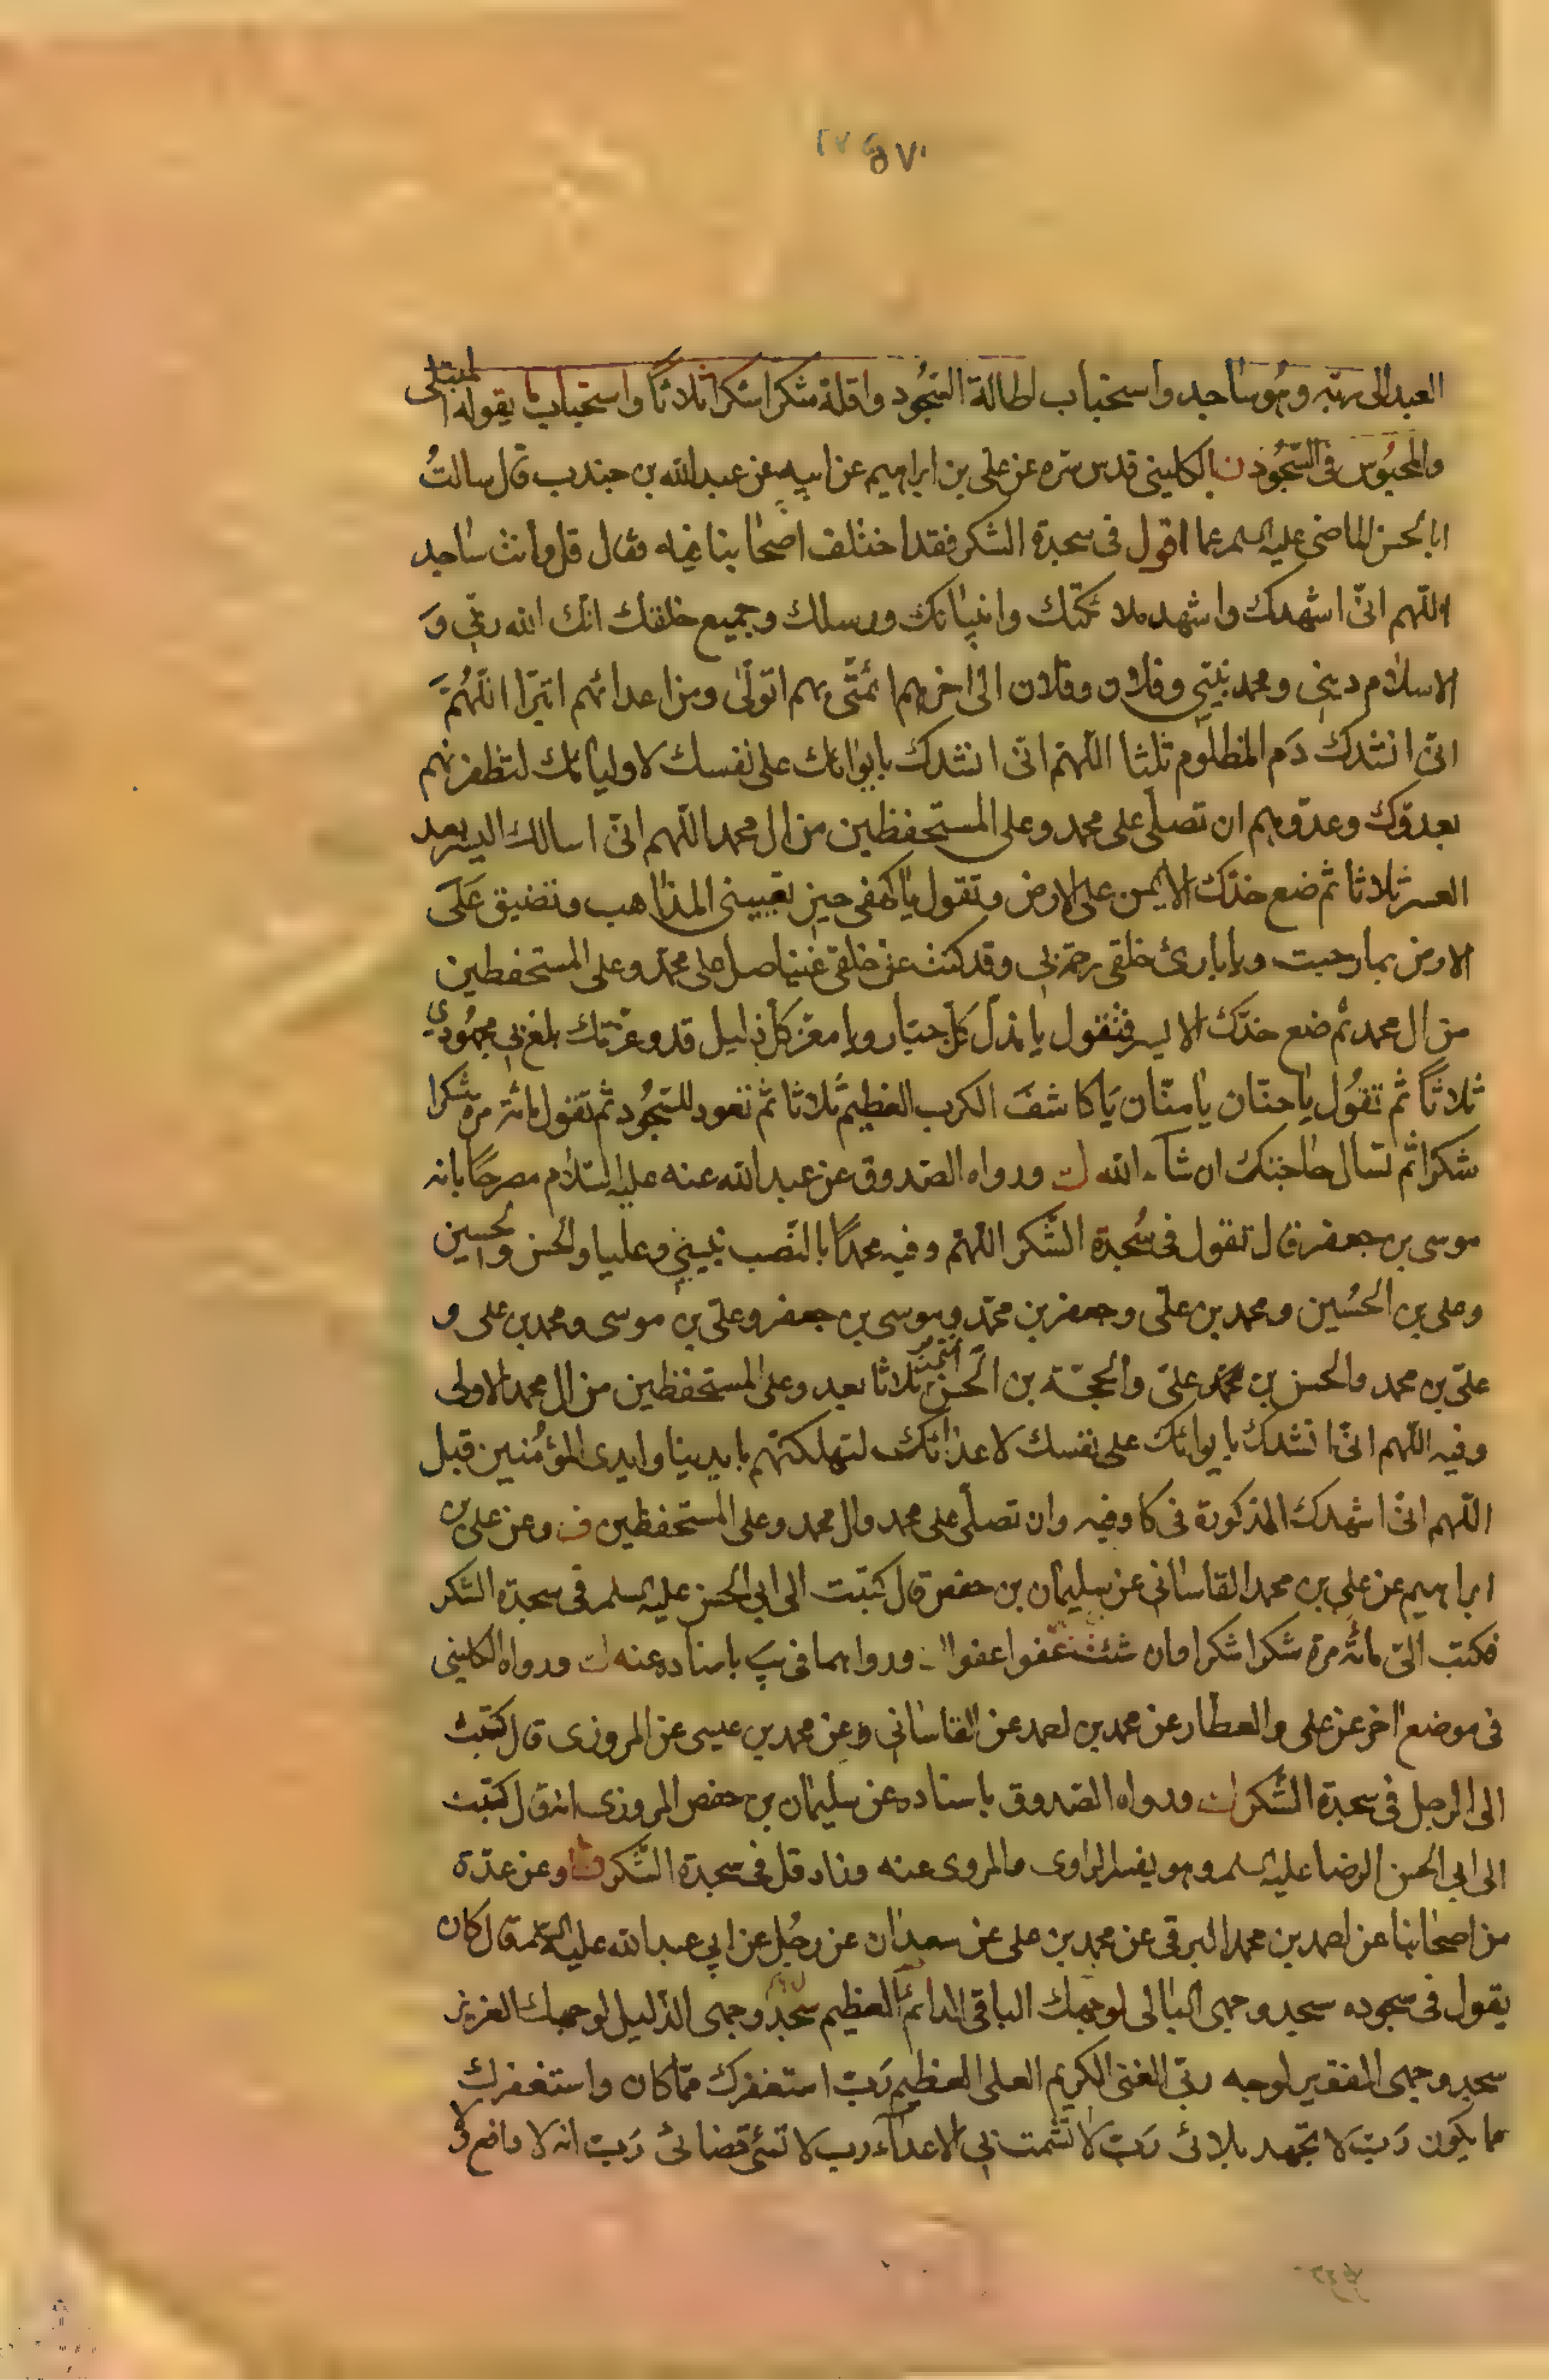 ٥٧١
العبد الى ربّه وهو ساجد واستحباب اطالة السّجُود واقله شكرا شكرا ثلاثاً واستحباب ما يقوله المبتلى
والمحبُوس فى السّجُود الكلينى قدس سره عن على بن ابراهيم عن ابيه عن عبدالله بن جندب قال سالتُ
ابا الحسن الماضى عليه السلم عما اقول فى سجدة الشكر فقد اختلف اصحابنا فيه فقال قل وانت ساجد
اللّهم انّى اشهدك واشهد ملائكتك وانبيائك ورسلك وجميع خلقك انّك الله ربّى وَ
الاسلام دينى ومحمد نبيّى وفلان وفلان الى اخرهم ائمّتى بهم اتولّى ومن اعدائهم اتبرّا اللّهُمّ
انّى انشدك دَم المظلوم ثلثا اللّهمّ انّى انشدك بايوائك على نفسك لاوليائك لتظفرنهم
بعدوّك وعدوّهم ان تصلّى على محمد وعلى المستحفظين من ال محمد اللّهم انّى اسالك اليسر بعد
العسر ثلاثا ثم ضع خدّك الايمن على الارض وتقول يا كهفى حين تعيينى المذاهب وتضيق عَلَى
الارض بما رحبت ويا بارئ خلقى رحمة بى وقد كنت عن خلقى غنيّا صل على محمّد وعلى المستحفظين
من ال محمد ثم ضع خدّك الايسر فتقول يا مذل كلّ جبّار ويا معزّ كلّ ذليل قد وعزّتك بلغ بى مجهُودى
ثلاثاً ثم تقُول يا حنّان يا منّان يَا كاشفَ الكرب العظيم ثلاثا ثم تعود للسّجُود ثم تقول مائة مرّة شكرا
شكرا ثم تسال حاجتك ان شاء الله ورواه الصّدوق عن عبدالله عنه عليه السّلام مصرحًا بانه
موسى بن جعفر قال تقول فى سُجدة الشّكر اللّهمّ وفيه محمدًا بالنّصب نبيّى وعليا والحسن والحسين
وعلى بن الحسُين ومحمد بن علىّ وجعفر بن محمّد وموسى بن جعفر وعلىّ بن موسى ومحمد بن على و
علىّ بن محمد والحسن بن علىّ والحجّة بن الحسن ائمّتى ثلاثا بعد وعلى المستحفظين من ال محمد الاولى
وفيه اللّهم انّى انشدك بايوائك على نفسك لاعدائك لتهلكنّهم بايدينا وايدى المؤمُنين قبل
اللّهم انّى اشهدك المذكورة فى كا وفيه وان تصلّى على محمد وال محمد وعلى المستحفظين وعن على بن
ابراهيم عن على بن محمد القاسانى عن سليمان بن حفص قال كتبت الى ابى الحسن عليه السلم فى سجدة الشكر
فكتب الىّ مائة مرة شكرا شكرا وان شئت عفوا عفوا ورواهما فى يب باسناده عنه ورواه الكلينى
فى موضع اخر عن على والعطار عن محمد بن احمد عن القاسانى وعن محمد بن عيسى عن المروزى قال كتبت
الى الرجل فى سجدة الشّكر ورواه الصّدوق باسناده عن سليمان بن حفص المروزى انه قال كتبت
الى ابى الحسن الرضا عليه السلم وهو يفسر الراوى والمروى عنه وزاد قل فى سجدة الشّكر وعن عدّة
من اصحابنا عن احمد بن محمد البرقى عن محمد بن على عن سعدان عن رجُل عن ابى عبدالله عليه السّلم قال كان
يقول فى سجوده سجد وجهى البالى لوجهك الباقى الدائم العظيم سجد وجهى الذّليل لوجهك العزيز
سجد وجهى الفقير لوجه ربّى الغنى الكريم العلى العظيم رَبّ استغفرك ممّا كان واستغفرك
مما يكون رَبّ لا تجهد بلائى رَبّ لا تشمت بى الاعداء رب لا تسئ قضائى رَبّ انه لا دافع و لا